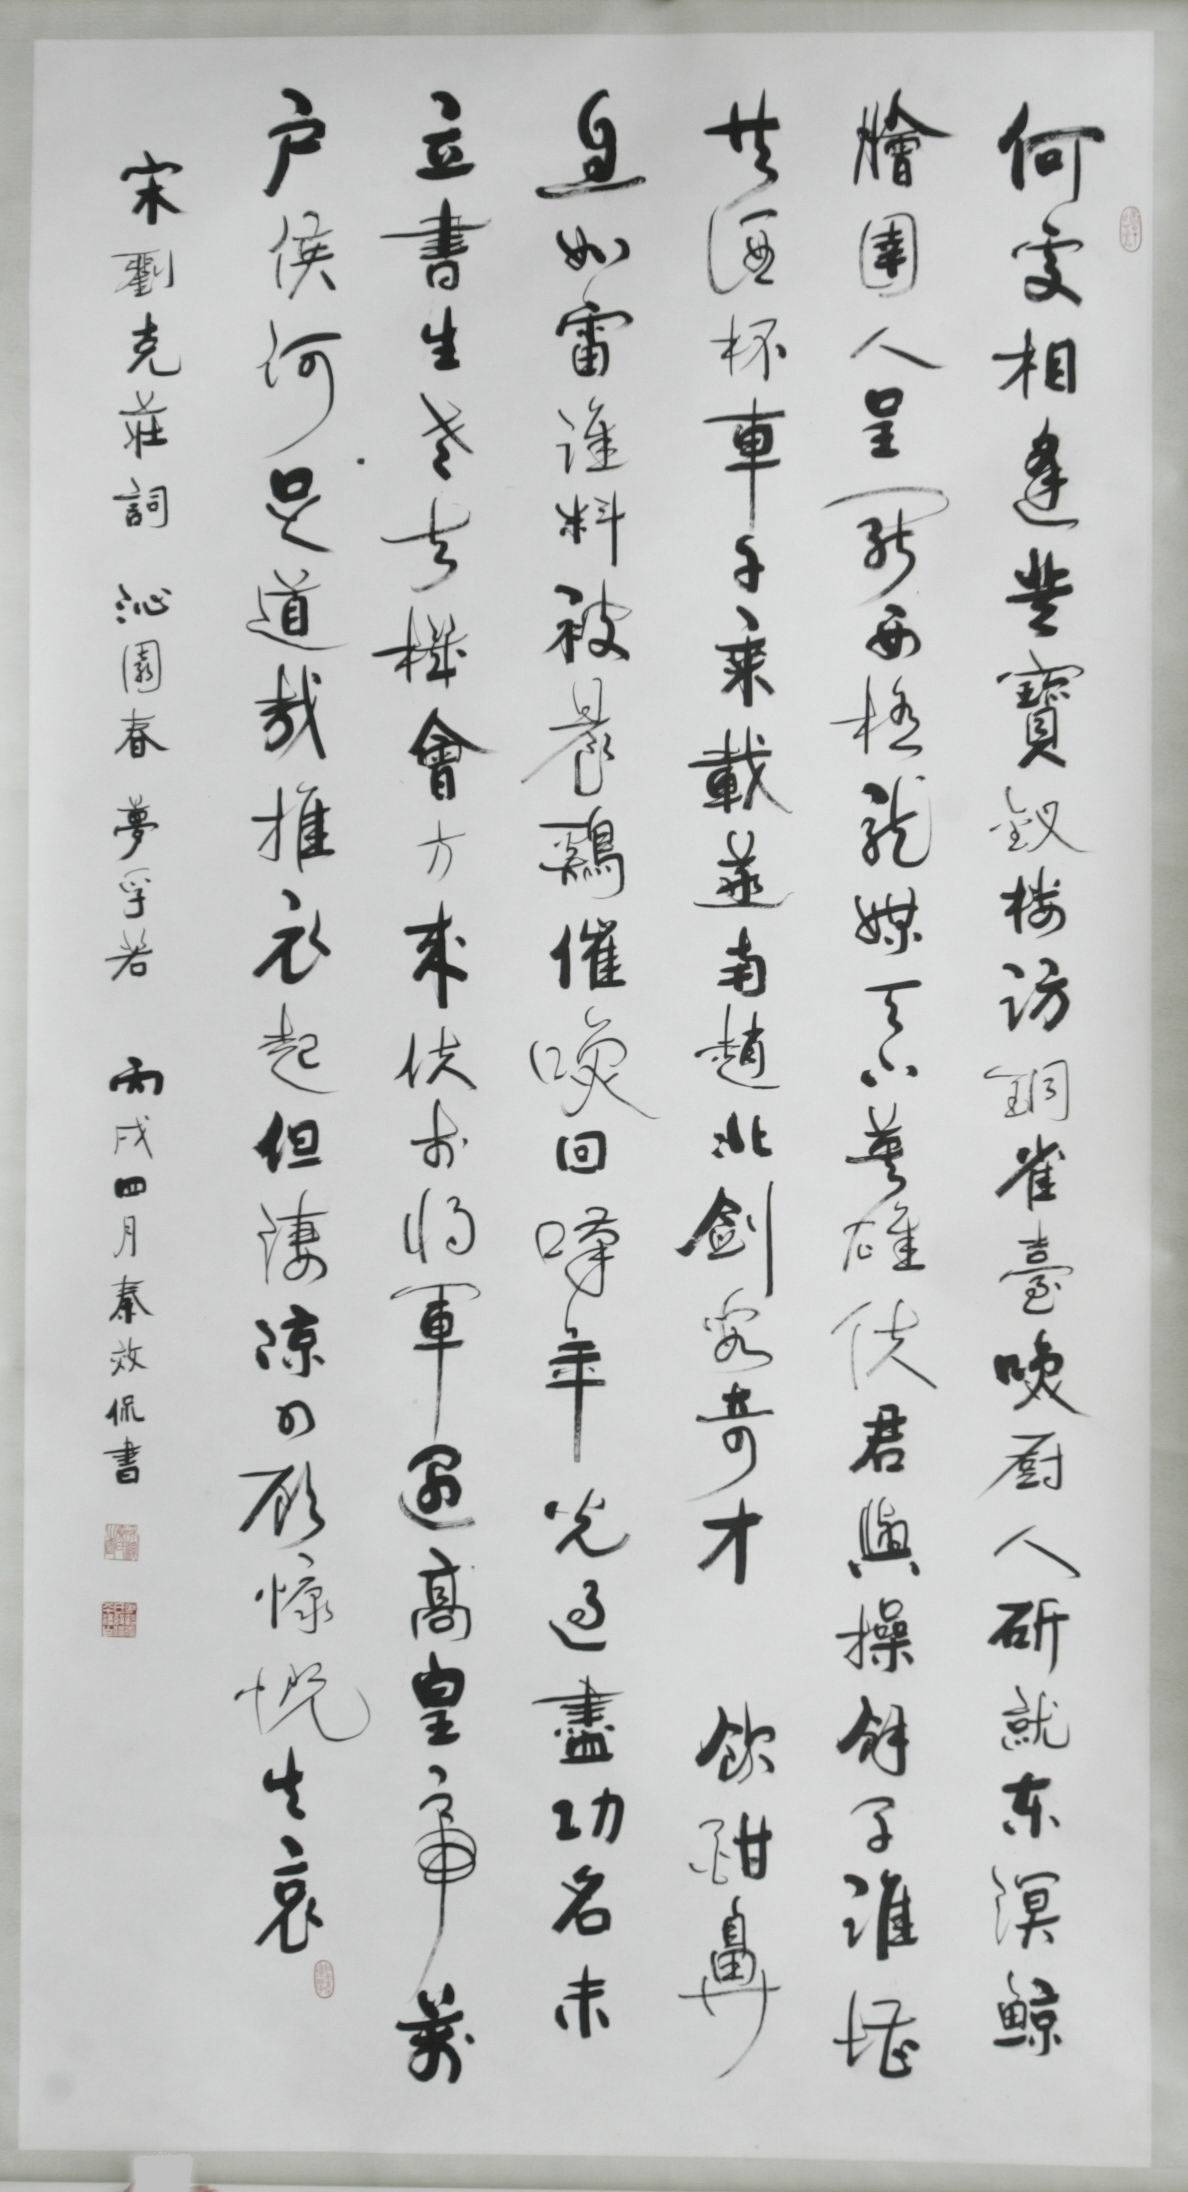 何處相逢登寶釵樓訪銅雀臺喚厨人斫就东溟鯨
膾圉人呈罷西極龍媒天下英雄使君與操餘子誰堪
共酒杯車千乘載燕南趙北劍客奇才 飲酣鼻
息如雷誰料被晨鷄催喚回嘆年光過盡功名未
立書生老去機會方來使李將軍遇高皇帝萬
户侯何足道哉推衣起但淒涼四顧慷慨生哀
宋劉克莊詞 沁園春 夢孚若 丙戌四月秦效侃書